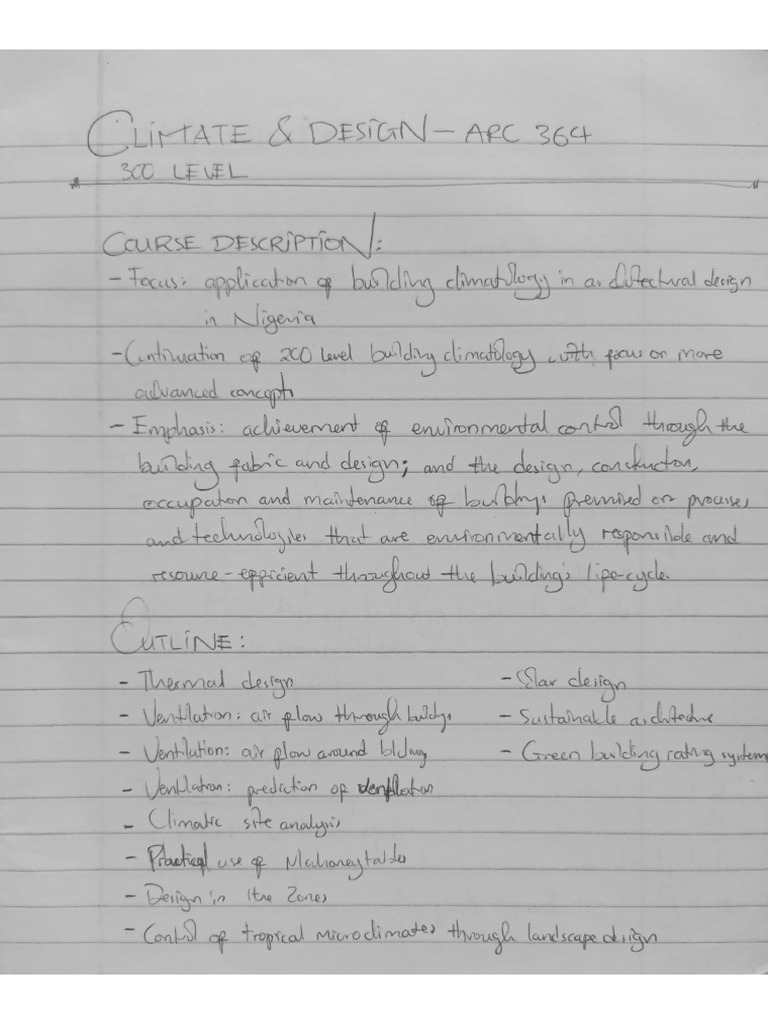 CLIMATE & DESIGN - ARC 364
300 LEVEL
COURSE DESCRIPTION:
- Focus: application of building climatology in architectural design
in Nigeria
- Continuation of 200 level building climatology with focus on more
advanced concepts
- Emphasis: achievement of environmental control through the
building fabric and design; and the design, construction,
occupation and maintenance of buildings premised on processes
and technologies that are environmentally responsible and
resource-efficient throughout the building's life-cycle.
OUTLINE:
- Thermal design
- Ventilation: air flow through buldgs
- Ventilation: air flow around blding
- Ventilation: prediction of ventilation
- Climatic site analysis
- Practical use of Mahoney tables
- Design in the Zones
- Control of tropical microclimates through landscape design
- Solar design
- Sustainable architecture
- Green building rating systems